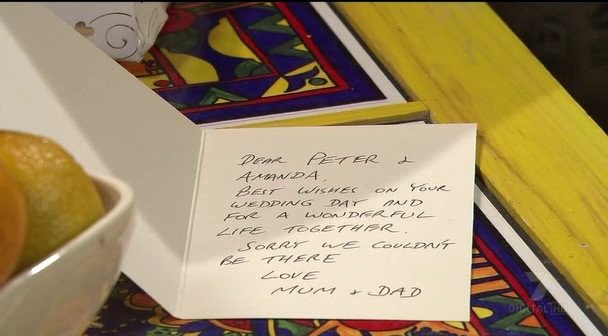 DEAR PETER &
AMANDA,
BEST WISHES ON YOUR
WEDDING DAY AND
FOR A WONDERFUL
LIFE TOGETHER.
SORRY WE COULDN'T
BE THERE
LOVE
MUM & DAD
7
DIGITAL HD